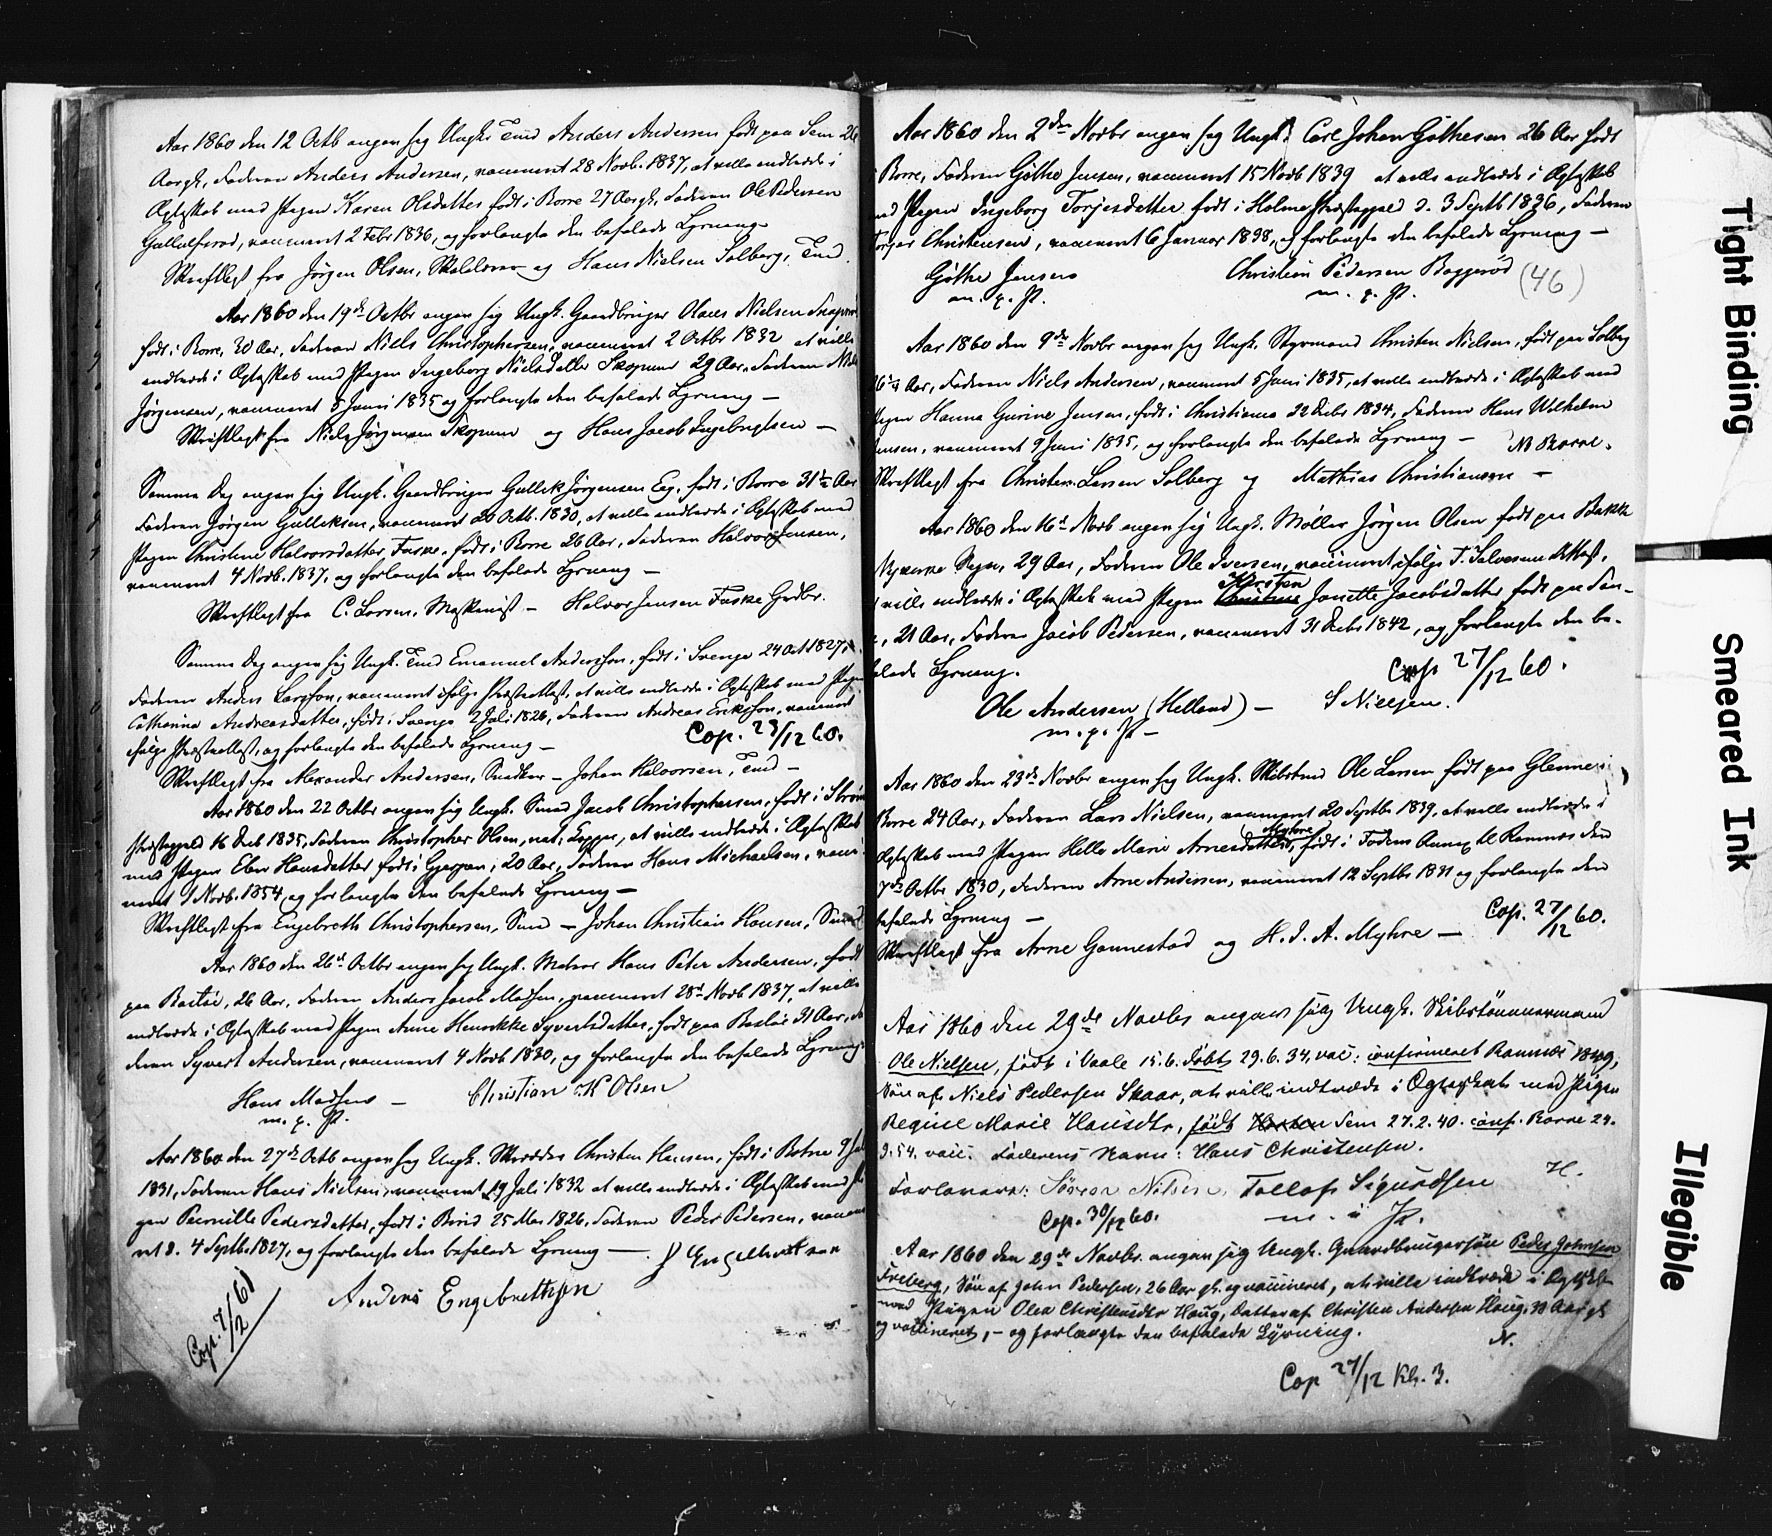 Aar 1860 den 12 Octb angav sig Ungk. Tmd Anders Andersen født paa Sem 26
Aar gl., Faderen Anders Andersen, vaccineret 28 Novb. 1837, at ville indtræde i
Ægteskab med Pigen Karen Olsdatter født i Borre 27 Aar gl., Faderen Ole Pedersen
vaccineret 2 Febr 1836, og forlangte den befalede Lysning.
Skriftligt fra Jørgen Olsen, og Hans Nielsen Solberg, Tmd.
Aar 1860 den 19de Octbr angav sig Ungk. Gaardbruger Claus Nielsen
født i Borre, 30 Aar, Faderen Niels Christophersen, vaccineret 2 Octbr 1832 at ville
indtræde i Ægteskab med Pigen Ingeborg Nielsdatter Skopum 29 Aar, Faderen Niels
Jørgensen, vaccineret 5 Juni 1835 og forlangte den befalede Lysning –
Skriftligt fra Niels Jørgensen Skopum og Hans Jacob Ingebrigtsen –
Samme Dag angav sig Ungk. Gaardbruger Gullik Jørgensen Eeg, født i Borre 31½ Aar
Faderen Jørgen Gulliksen, vaccineret 20 Octb. 1830, at ville indtræde i Ægteskab med
Pigen Christine Halvorsdatter Faske, født i Borre 26 Aar, Faderen Halvor Jensen,
vaccineret 4 Novb. 1837, og forlangte den befalede Lysning –
Skriftligt fra C. Larsen, Maskinist – Halvor Jensen Faske Grdbr.
Samme Dag angav sig Ungk. Tmd Emanuel Andersson, født i Sverge 24 Oct 1827,
Faderen Anders Larsson, vaccineret ifølge Præsteattest, at ville indtræde i Ægteskab med Pigen
Catharina Andreasdatter, født i Sverge 2 Juli 1826, Faderen Andreas Eriksson, vaccineret
ifølge Præsteattest, og forlangte den befalede Lysning – Cop. 23/12 60.
Skriftligt fra Alexander Andersen, Snedker – Johan Halvorsen, Tmd –
Aar 1860 den 22 Octbr angav sig Ungk. Smed Jacob Christophersen, født i
Præstegjeld 16 Deb 1835, Faderen Christopher Olsen, nat. Kopper, at ville indtræde i Ægteskab
med Pigen Elen Hansdatter født i Gjerpen, 20 Aar, Faderen Hans Michaelsen, vacci-
neret 1 Novb. 1854, og forlangte den befalede Lysning –
Skriftligt fra Engebreth Christophersen, Smed – Johan Christian Hansen, Smed
Aar 1860 den 26de Octbr angav sig Ungk. Matros Hans Peter Andersen, født
paa Bastøe, 26 Aar, Faderen Anders Jacob Madsen, vaccineret 28de Novb 1837, at ville
indtræde i Ægteskab med Pigen Anne Henrikke Syvertsdatter, født paa Bastøe 31 Aar, Fa-
deren Syvert Andersen, vaccineret 4 Novb 1830, og forlangte den befalede Lysning
Hans Madsens – Christian K Olsen
m. p. P.
Aar 1860 den 27de Octb angav sig Ungk. Skrædder Christen Hansen, født i Botne 9
1831, Faderen Hans Nielsen, vaccineret 19 Juli 1832 at ville indtræde i Ægteskab med Pi-
gen Pernille Pedersdatter, født i Birid 25 Mar 1826, Faderen Peder Pedersen, vacci-
net d. 4 Septb. 1827, og forlangte den befalede Lysning –
Anders Engebrethsen
Cop. 7/2 61
Aar 1860 den 2den Novbr angav sig Ungk. Carl Johan Gøthesen 26 Aar født
Borre, Faderen Gøthe Jensen, vaccineret 15 Novb 1839 at ville indtræde i Ægteskab
med Pigen Ingeborg Torjesdatter født i Holme Præstegjeld d. 3 Septb 1836, Faderen
Torjer Christensen, vaccineret 6 Januar 1838, og forlangte den befalede Lysning –
Gøthe Jensens Christian Pedersen Baggerød (46)
m. p. P. m. p. P.
Aar 1860 den 9de Novbr angav sig Ungk. Styrmand Christen Nielsen, født paa Solberg
26½ Aar, Faderen Niels Andersen, vaccineret 5 Juni 1835, at ville indtræde i Ægteskab med
Pigen Hanna Gurine Jensen, født i Christiania 22 Debr 1834, Faderen Hans Wilhelm
Jensen, vaccineret 9 Juni 1835, og forlangte den befalede Lysning –
Skriftligt fra Christen Larsen Solberg og Mathias Christiansen –
Aar 1860 den 16de Novb angav sig Ungk. Møller Jørgen Olsen født paa Bakke
Nykirke Sogn, 29 Aar, Faderen Ole Iversen, vaccineret ifølge T. Salvesens Attest,
at ville indtræde i Ægteskab med Pigen Christine Kirsten Janette Jacobsdatter født paa
21 Aar, Faderen Jacob Pedersen, vaccineret 31 Debr 1842, og forlangte den be-
falede Lysning. Cop. 27/12 60.
Ole Andersen (Helland) – S Nielsen.
m. p. P –
Aar 1860 den 23de Novbr angav sig Ungk. Skibstmd Ole Larsen født paa Glenne i
Borre 24 Aar, Faderen Lars Nielsen, vaccineret 20 Septbr 1839, at ville indtræde i
Ægteskab med Pigen Helle Marie Arnesdatter Myhre, født i Fodens Annex til Ramnæs den
7de Octbr 1830, Faderen Arne Andersen, vaccineret 12 Septbr 1831 og forlangte den
befalede Lysning – Cop. 27/12 60.
Skriftligt fra Arne Gannestad og H. I. A. Myhre –
Aar 1860 den 29de Novbr angav sig Ungk. Skibstømmermand
Ole Nielsen, født i Vaale 15.6. døbt 29.6.34, vac: confirmeret Ramnæs 1849,
Søn af Niels Pedersen Skaar, at ville indtræde i Ægteskab med Pigen
Regine Marie Hansdtr, født Horten Sem 27.2.40. conf. Borre 24.
9.54. vac. Faderens Navn: Hans Christensen.
Forlovere: Søren Nilsen. Tollof Sigurdsen H.
Cop. 30/12 60. m. i P.
Aar 1860 den 29de Novbr. angav sig Ungk. Gaardbrugersøn Peder Johnsen
Freberg, Søn af John Pedersen, 26 Aar gl. og vaccineret, at ville indtræde i Ægteskab
med Pigen Olea Christensdtr Haug, Datter af Christen Andersen Haug, 30 Aar gl
og vaccineret, – og forlangte den befalede Lysning. N.
Cop 27/12 Kl. 3.
Tight Binding
Smeared Ink
Illegible